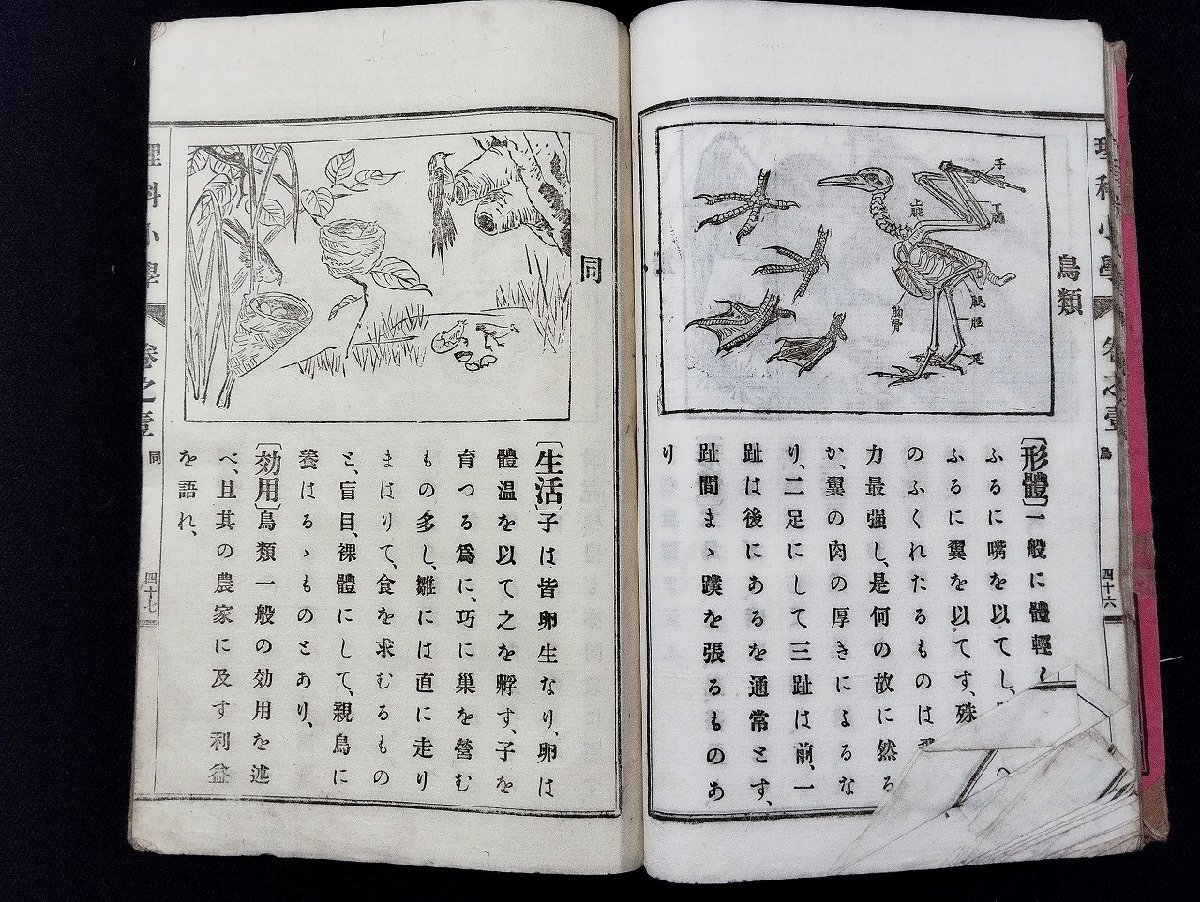 理科小學
卷之壹
鳥
四十六
鳥類
手
下膊
上膊
胸骨
腿
脛
〔形體〕一般に體輕し
ふるに嘴を以てし、
ふるに翼を以てす、殊
のふくれたるものは
力最强し、是何の故に然る
か、翼の肉の厚きによるな
り、二足にして三趾は前、一
趾は後にあるを通常とす、
趾間まゝ蹼を張るものあ
り
同
〔生活〕子は皆卵生なり、卵は
體温を以て之を孵す、子を
育つる爲に、巧に巢を營む
もの多し、雛には直に走り
まはりて、食を求むるもの
と、盲目、裸體にして、親鳥に
養はるゝものとあり、
〔効用〕鳥類一般の効用を述
べ、且其の農家に及す利益
を語れ、
理科小學
卷之壹
同
四十七